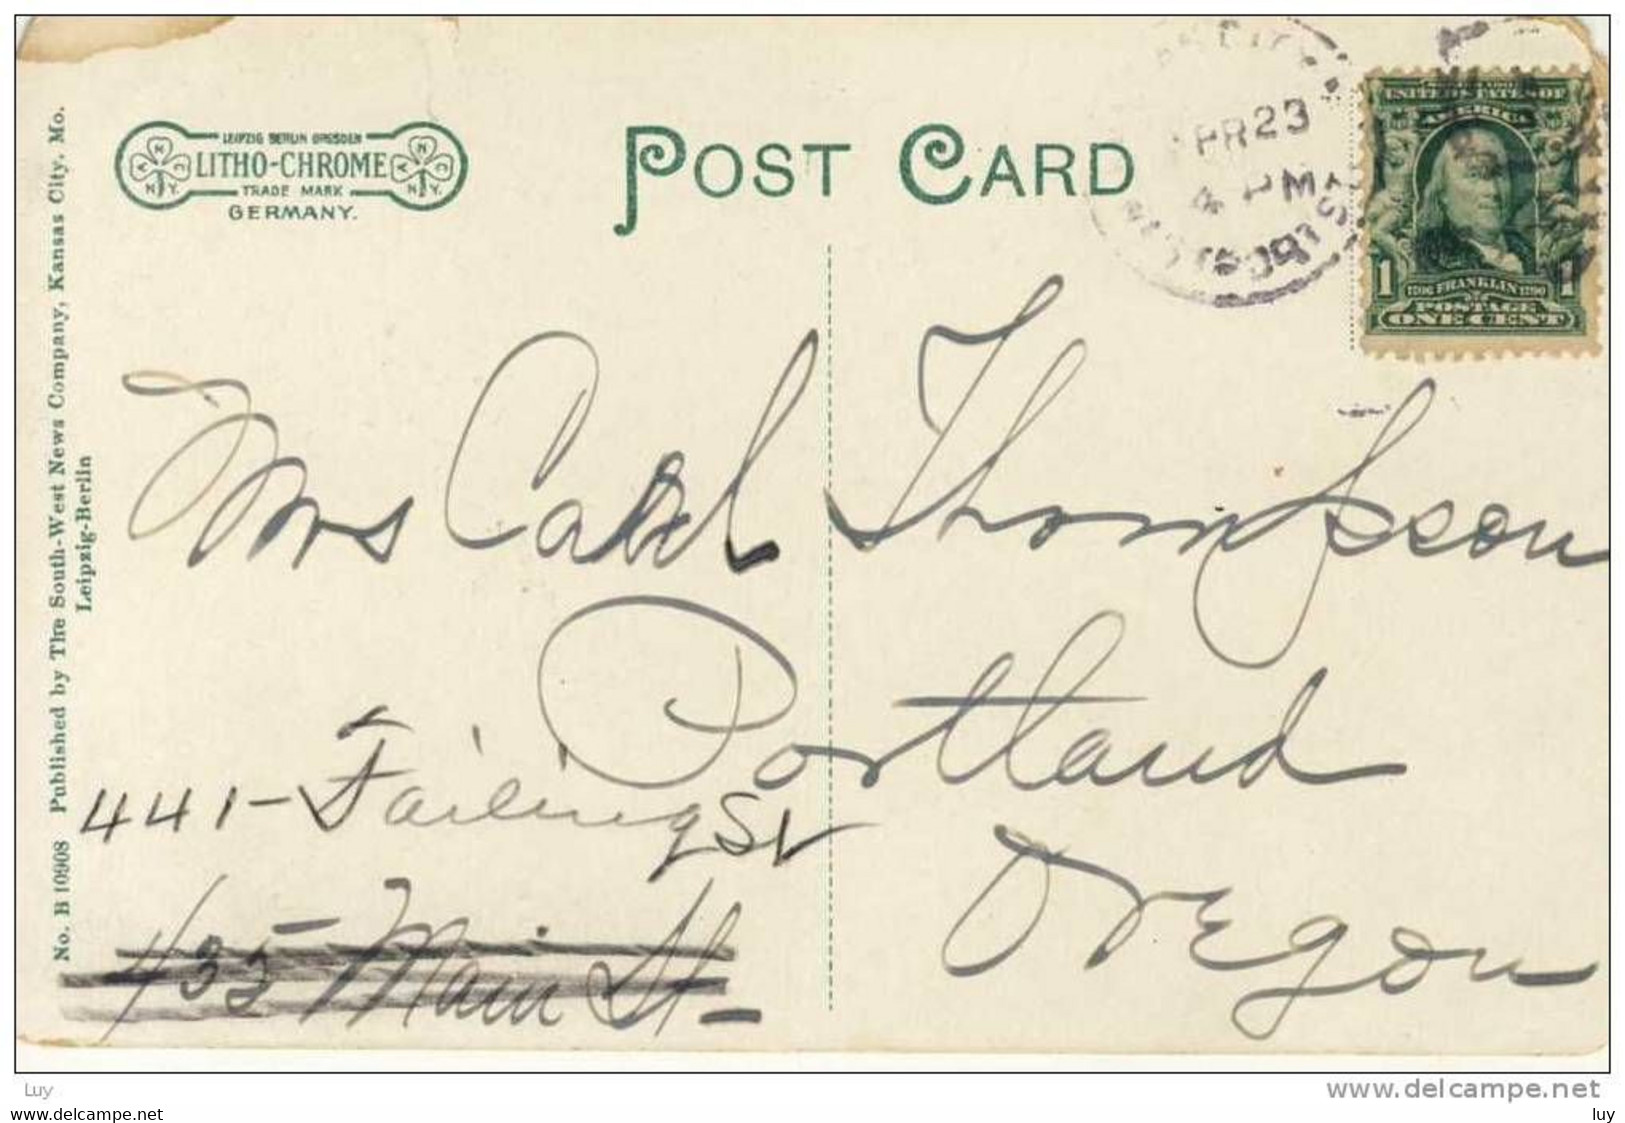 LEIPZIG BERLIN DRESDEN
LITHO-CHROME
TRADE MARK
GERMANY.
POST CARD
PR 23
4 PM
UNITED STATES OF
AMERICA
1 1706 FRANKLIN 1790 1
POSTAGE
ONE CENT
Mrs Thompson
Portland
Oregon
441 - Failing St
435 Main St -
No. B 10908 Published by The South-West News Company, Kansas City, Mo.
Leipzig-Berlin
Luy
www.delcampe.net
luy
luy